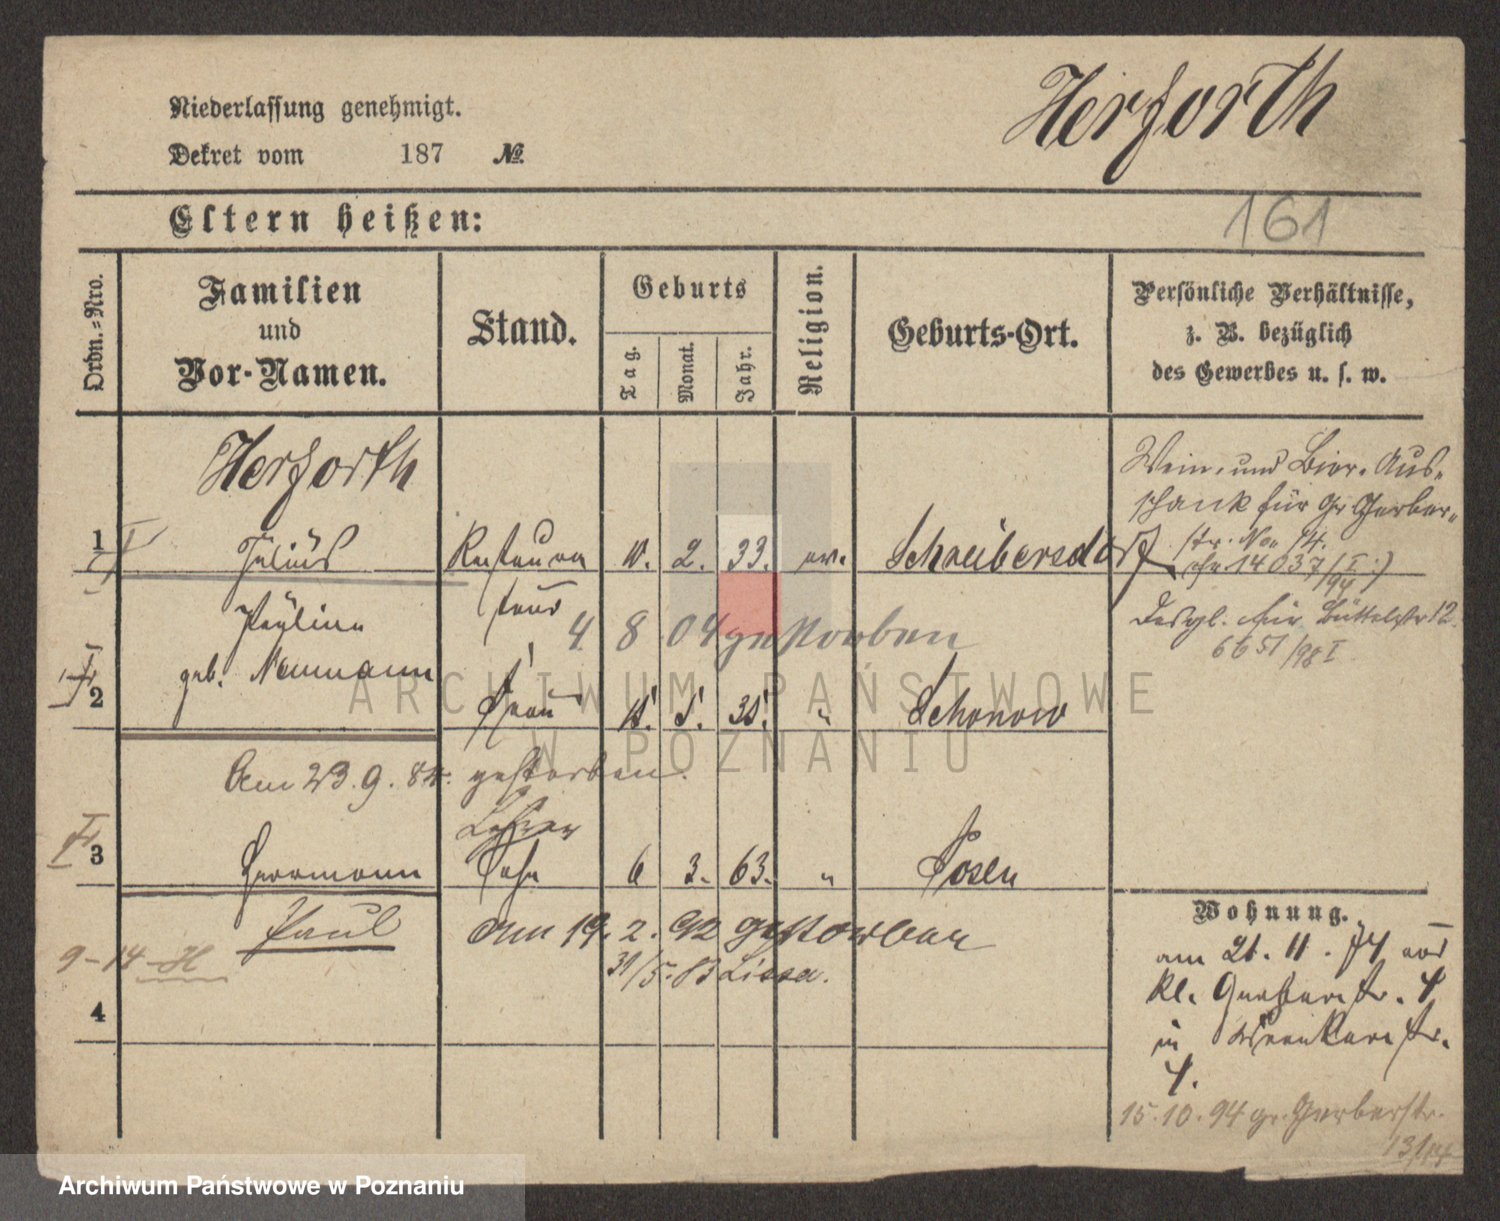 Herforth
Niederlassung genehmigt.
Dekret vom 187 No.
161
Eltern heißen:
Ordn.=Nro.
Familien
und
Vor-Namen.
Stand.
Geburts
Tag.
Monat.
Jahr.
Religion.
Geburts-Ort.
Persönliche Verhältnisse,
z. B. bezüglich
des Gewerbes u. s. w.
Herforth
1 Julius Restaura 10. 2. 33. ev. Schreibersdorf
teur
Wein- und Bier-Aus-
schank für Gr Gerber-
str. No. 14.
14037/I 94
Desgl. für Büttelstr 12.
6651/98 I
Pauline
4. 8 04 gestorben
geb. Neumann
2 Frau 15. 5. 35. " Schonow
Am 23.9.84. gestorben.
Lehrer
3 Herrmann Sohn 6 3. 63. " Posen
Paul am 19. 2. 92 gestorben
9-14 H
31/5. 13 Lissa.
4
Wohnung.
am 21. 11. 74 aus
Kl. Gerberstr. 4
in Wronkerstr.
4.
15.10.94 gr. Gerberstr.
13/14
ARCHIWUM PAŃSTWOWE
W POZNANIU
Archiwum Państwowe w Poznaniu